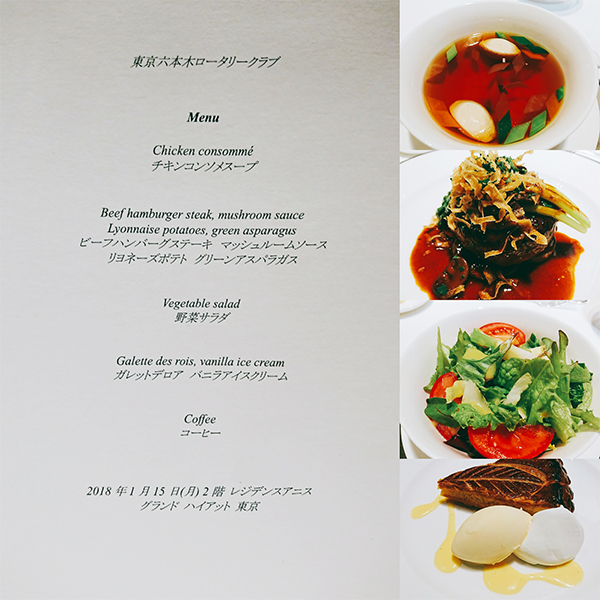 東京六本木ロータリークラブ
Menu
Chicken consommé
チキンコンソメスープ
Beef hamburger steak, mushroom sauce
Lyonnaise potatoes, green asparagus
ビーフハンバーグステーキ マッシュルームソース
リヨネーズポテト グリーンアスパラガス
Vegetable salad
野菜サラダ
Galette des rois, vanilla ice cream
ガレットデロア バニラアイスクリーム
Coffee
コーヒー
2018 年 1 月 15 日(月) 2 階 レジデンスアニス
グランド ハイアット 東京